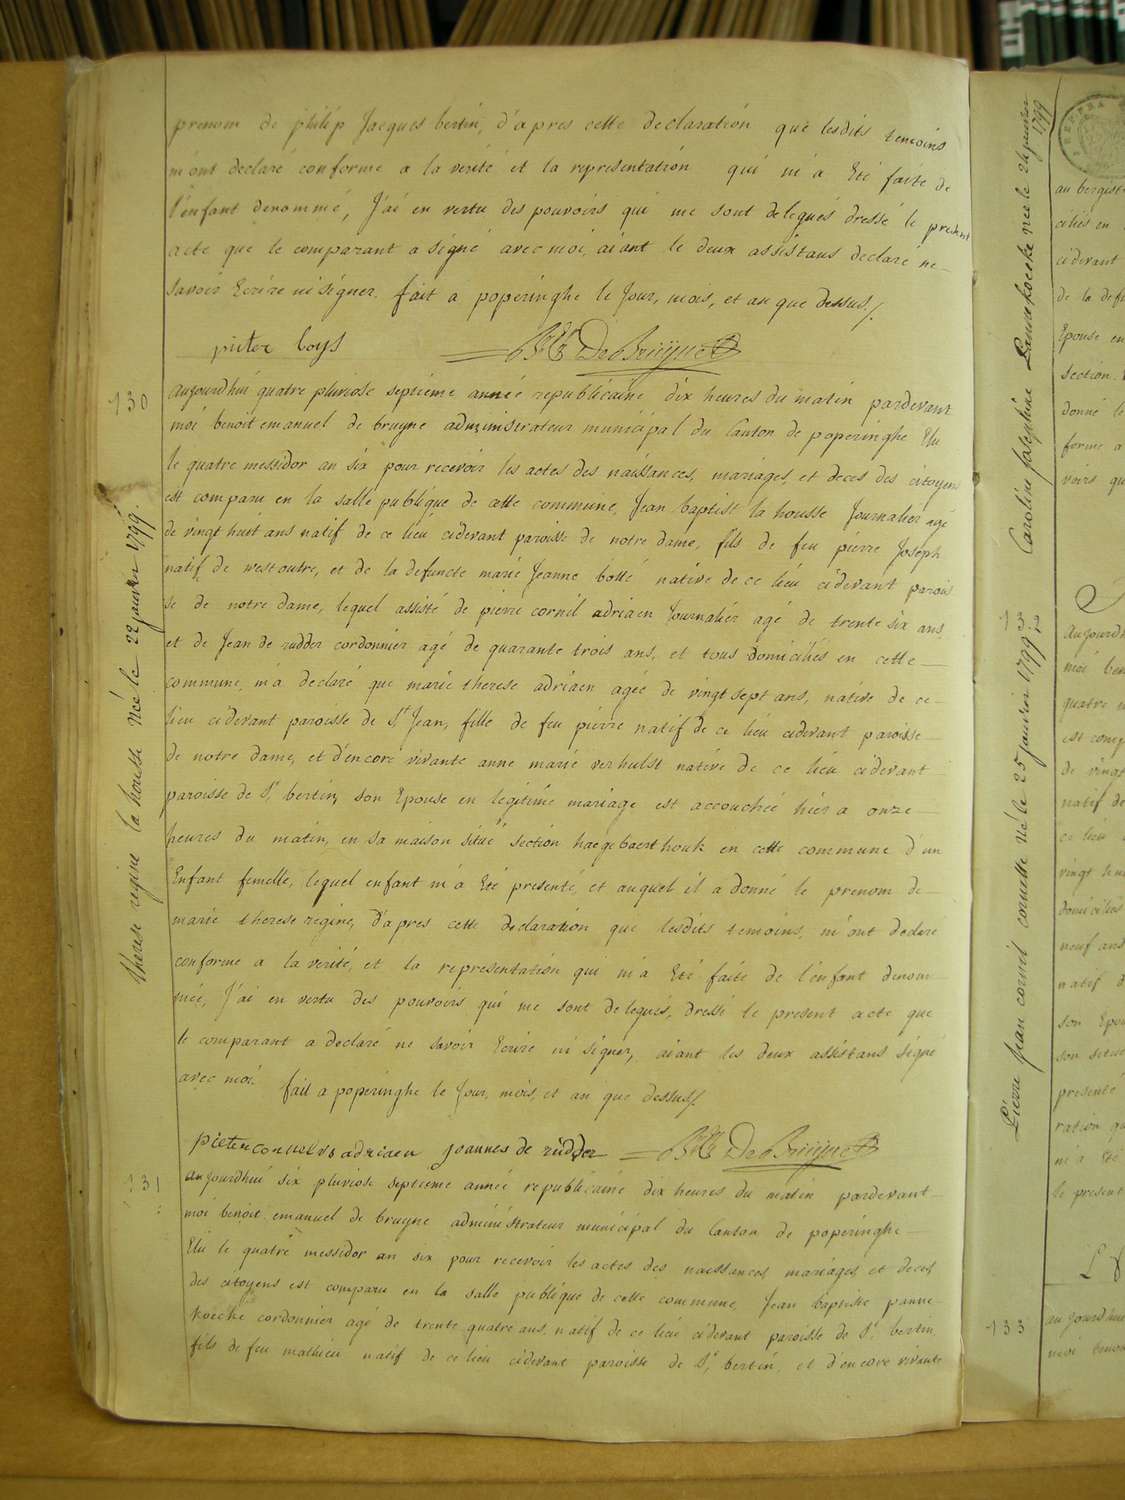 prenom de philip Jacques bertin, d'apres cette declaration que lesdits temoins
m'ont declaré conforme a la verité et la représentation qui m'a Eté faite de
l'enfant denommé, J'ai en vertu des pouvoirs qui me sont delegués dressé le present
acte que le comparant a signé avec moi, aiant le deux assistans declaré ne
savoir Ecrire ni signer, fait a poperinghe le Jour, mois, et an que dessus./.
pieter boys
De Bruyne
130
aujourdhui quatre pluviose septieme année republicaine dix heures du matin pardevant
moi benoit emanuel de bruyne administrateur municipal du Canton de poperinghe Elu
le quatre messidor an six pour recevoir les actes des naissances, mariages, et deces des citoyens
est comparu en la salle publique de cette commune, Jean baptist la housse Journalier agé
de vingt huit ans natif de ce lieu cidevant paroisse de notre dame, fils de feu pierre Joseph
natif de westoutre, et de la defuncte marie Jeanne botté native de ce lieu cidevant parois
se de notre dame, lequel assisté de pierre cornil adriaen Journalier agé de trente six ans,
et de Jean de rudder cordonnier agé de quarante trois ans, et tous domiciliés en cette
commune, m'a declaré que marie therese adriaen agée de vingt sept ans, native de ce
lieu cidevant paroisse de St Jean, fille de feu pierre natif de ce lieu cidevant paroisse
de notre dame, et d'encore vivante anne marie verhulst native de ce lieu cidevant
paroisse de St bertin, son Epouse en legitime mariage est accouchée hier a onze
heures du matin, en sa maison situé section haegebaert houk en cette commune d'un
Enfant femelle, lequel enfant m'a Eté presenté, et auquel il a donné le prenom de
marie therese regine, d'apres cette declaration que lesdits temoins, m'ont declaré
conforme a la verité, et la representation qui m'a Eté faite de l'enfant denom
mée, J'ai en vertu des pouvoirs qui me sont delegués, dressé le present acte que
le comparant a declaré ne savoir Ecrire ni signer, aiant les deux assistans signé
avec moi. fait a poperinghe le Jour, mois, et an que dessus/.
pieter cornelus adriaen Joannes de rudder
De Bruyne
therese regine la housse née le 22 janvier 1799.
131
aujourdhui six pluviose septieme année republicaine dix heures du matin pardevant
moi benoit emanuel de bruyne administrateur municipal du Canton de poperinghe
Elu le quatre messidor an six pour recevoir les actes des naissances mariages et deces
des citoyens est comparu en la salle publique de cette commune, Jean baptiste panne
koecke cordonnier agé de trente quatre ans, natif de ce lieu cidevant paroisse de St bertin
fils de feu mathieu natif de ce lieu cidevant paroisse de St bertin, et d'encore vivante
Caroline Josephine Pannekoecke née le 24 janvier 1799
au bergist
ciliés en
cidevant
de la def
Epouse en
section
donné le
forme a
voirs qu
132
Pierre Jean cornil cornette né le 25 Janvier 1799
aujourdh
moi ben
quatre m
est comp
de vingt
natif de
ce lieu
vingt hu
domiciliés
neuf ans
natif d
son Epou
son situé
presenté
ration qu
m'a Eté
le present
133
aujourdhui
moi benoi